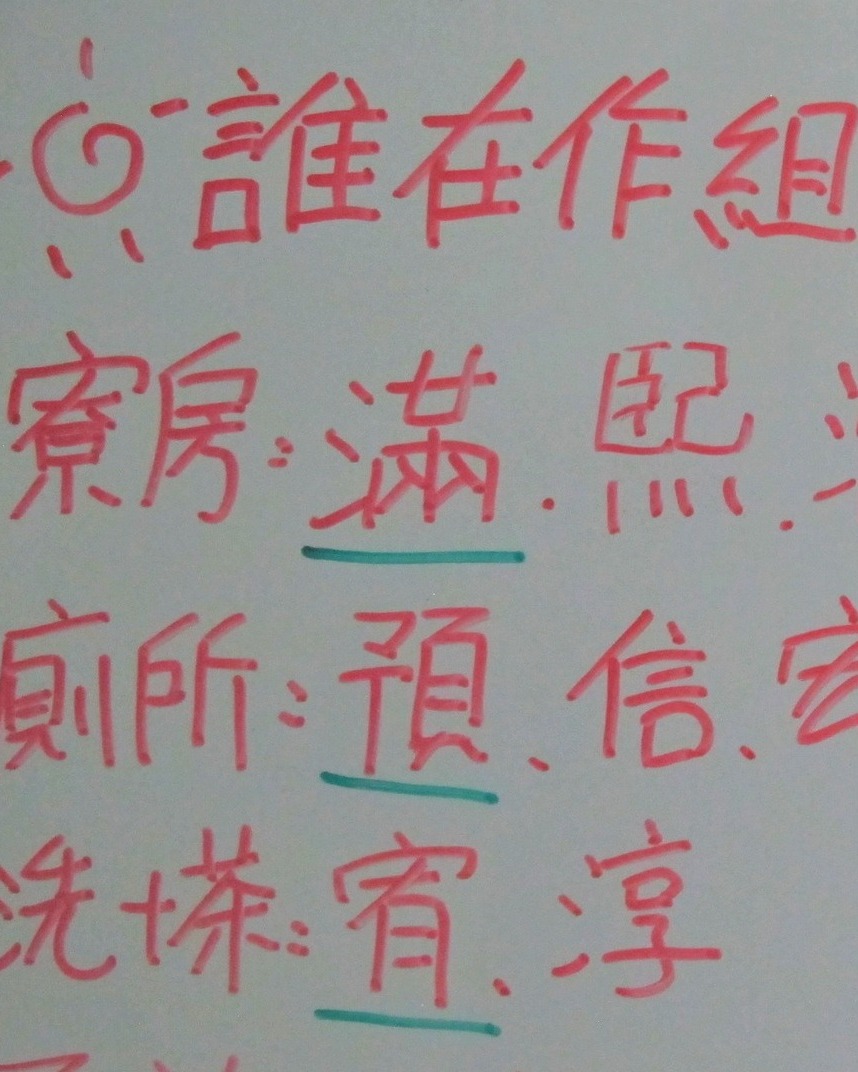 誰在作組
寮房：滿．熙．
廁所：預、信、
洗+茶：宥、淳